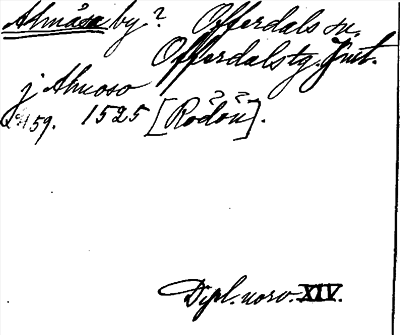 Almåsa by? Offerdals sn.
Offerdals tg. Jmt.
j Almoso
159. 1525 [Rödön].
Dipl. norv. XIV.